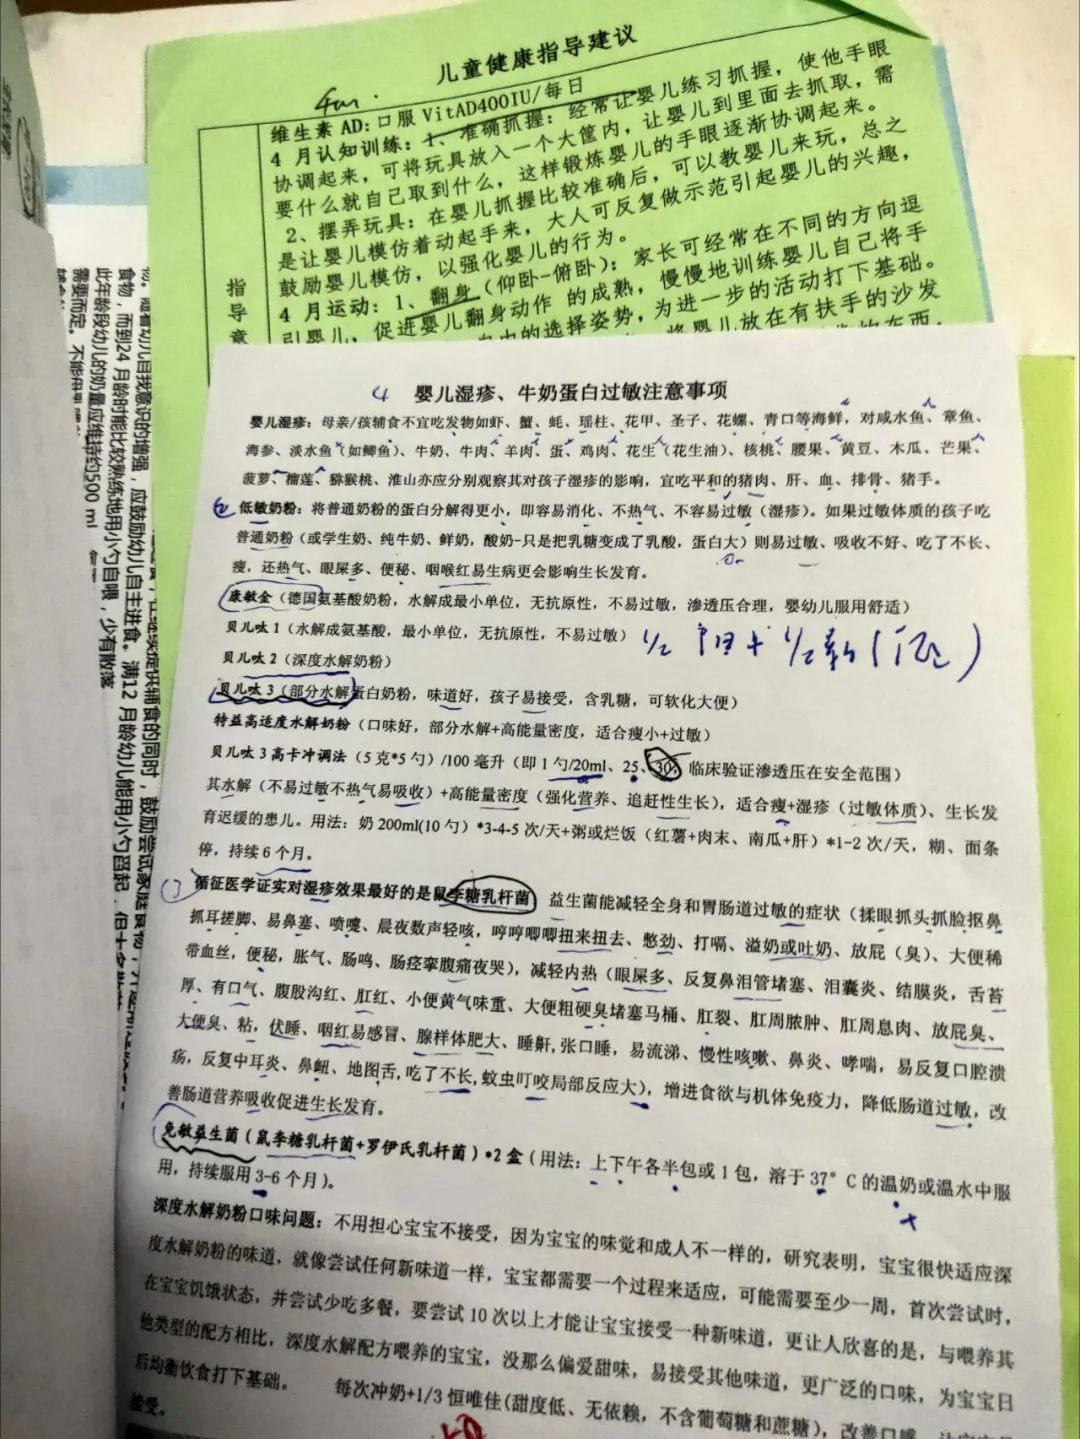 儿童健康指导建议
维生素 AD: 口服 VitAD400IU/每日
4 月认知训练：1、准确抓握：经常让婴儿练习抓握，使他手眼
协调起来，可将玩具放入一个大筐内，让婴儿到里面去抓取，需
要什么就自己取到什么，这样锻炼婴儿的手眼逐渐协调起来。
2、摆弄玩具：在婴儿抓握比较准确后，可以教婴儿来玩，总之
是让婴儿模仿着动起手来，大人可反复做示范引起婴儿的兴趣，
鼓励婴儿模仿，以强化婴儿的行为。
4 月运动：1、翻身（仰卧-俯卧）：家长可经常在不同的方向逗
引婴儿，促进婴儿翻身动作 的成熟，慢慢地训练婴儿自己将手
中的选择姿势，为进一步的活动打下基础。
将婴儿放在有扶手的沙发
指
导
意
目我意识的增强，应鼓励幼儿自主进食。满12 月龄幼儿能用小勺
食物，而到24 月龄时能比较熟练地用小勺自喂，少有散落
此年龄段幼儿的奶量应维持约500 ml
需要而定。不能
4 婴儿湿疹、牛奶蛋白过敏注意事项
婴儿湿疹：母亲/孩辅食不宜吃发物如虾、蟹、蚝、瑶柱、花甲、圣子、花螺、青口等海鲜，对咸水鱼、章鱼、
海参、淡水鱼（如鲫鱼）、牛奶、牛肉、羊肉、蛋、鸡肉、花生（花生油）、核桃、腰果、黄豆、木瓜、芒果、
菠萝、榴莲、猕猴桃、淮山亦应分别观察其对孩子湿疹的影响，宜吃平和的猪肉、肝、血、排骨、猪手。
② 低敏奶粉：将普通奶粉的蛋白分解得更小，即容易消化、不热气、不容易过敏（湿疹）。如果过敏体质的孩子吃
普通奶粉（或学生奶、纯牛奶、鲜奶，酸奶-只是把乳糖变成了乳酸，蛋白大）则易过敏、吸收不好、吃了不长、
瘦，还热气、眼屎多、便秘、咽喉红易生病更会影响生长发育。
康敏金（德国氨基酸奶粉，水解成最小单位，无抗原性，不易过敏，渗透压合理，婴幼儿服用舒适）
贝儿呔 1（水解成氨基酸，最小单位，无抗原性，不易过敏）
贝儿呔 2（深度水解奶粉）
贝儿呔 3（部分水解蛋白奶粉，味道好，孩子易接受，含乳糖，可软化大便）
特益高适度水解奶粉（口味好，部分水解+高能量密度，适合瘦小+过敏）
贝儿呔 3 高卡冲调法（5 克*5 勺）/100 毫升（即 1 勺/20ml、25、30，临床验证渗透压在安全范围）
其水解（不易过敏不热气易吸收）+高能量密度（强化营养、追赶性生长），适合瘦+湿疹（过敏体质）、生长发
育迟缓的患儿。用法：奶 200ml(10 勺）*3-4-5 次/天+粥或烂饭（红薯+肉末、南瓜+肝）*1-2 次/天，糊、面条
停，持续 6 个月。
循征医学证实对湿疹效果最好的是鼠李糖乳杆菌 益生菌能减轻全身和胃肠道过敏的症状（揉眼抓头抓脸抠鼻
抓耳搓脚、易鼻塞、喷嚏、晨夜数声轻咳，哼哼唧唧扭来扭去、憋劲、打嗝、溢奶或吐奶、放屁（臭）、大便稀
带血丝，便秘，胀气、肠鸣、肠痉挛腹痛夜哭），减轻内热（眼屎多、反复鼻泪管堵塞、泪囊炎、结膜炎，舌苔
厚、有口气、腹股沟红、肛红、小便黄气味重、大便粗硬臭堵塞马桶、肛裂、肛周脓肿、肛周息肉、放屁臭、
大便臭、粘，伏睡、咽红易感冒、腺样体肥大、睡鼾,张口睡，易流涕、慢性咳嗽、鼻炎、哮喘，易反复口腔溃
疡，反复中耳炎、鼻衄、地图舌,吃了不长,蚊虫叮咬局部反应大），增进食欲与机体免疫力，降低肠道过敏，改
善肠道营养吸收促进生长发育。
免敏益生菌（鼠李糖乳杆菌+罗伊氏乳杆菌）*2 盒（用法：上下午各半包或 1 包，溶于 37° C 的温奶或温水中服
用，持续服用 3-6 个月）。
深度水解奶粉口味问题：不用担心宝宝不接受，因为宝宝的味觉和成人不一样的，研究表明，宝宝很快适应深
度水解奶粉的味道，就像尝试任何新味道一样，宝宝都需要一个过程来适应，可能需要至少一周，首次尝试时，
在宝宝饥饿状态，并尝试少吃多餐，要尝试 10 次以上才能让宝宝接受一种新味道，更让人欣喜的是，与喂养其
他类型的配方相比，深度水解配方喂养的宝宝，没那么偏爱甜味，易接受其他味道，更广泛的口味，为宝宝日
后均衡饮食打下基础。 每次冲奶+1/3 恒唯佳(甜度低、无依赖，不含葡萄糖和蔗糖），改善口感
接受。